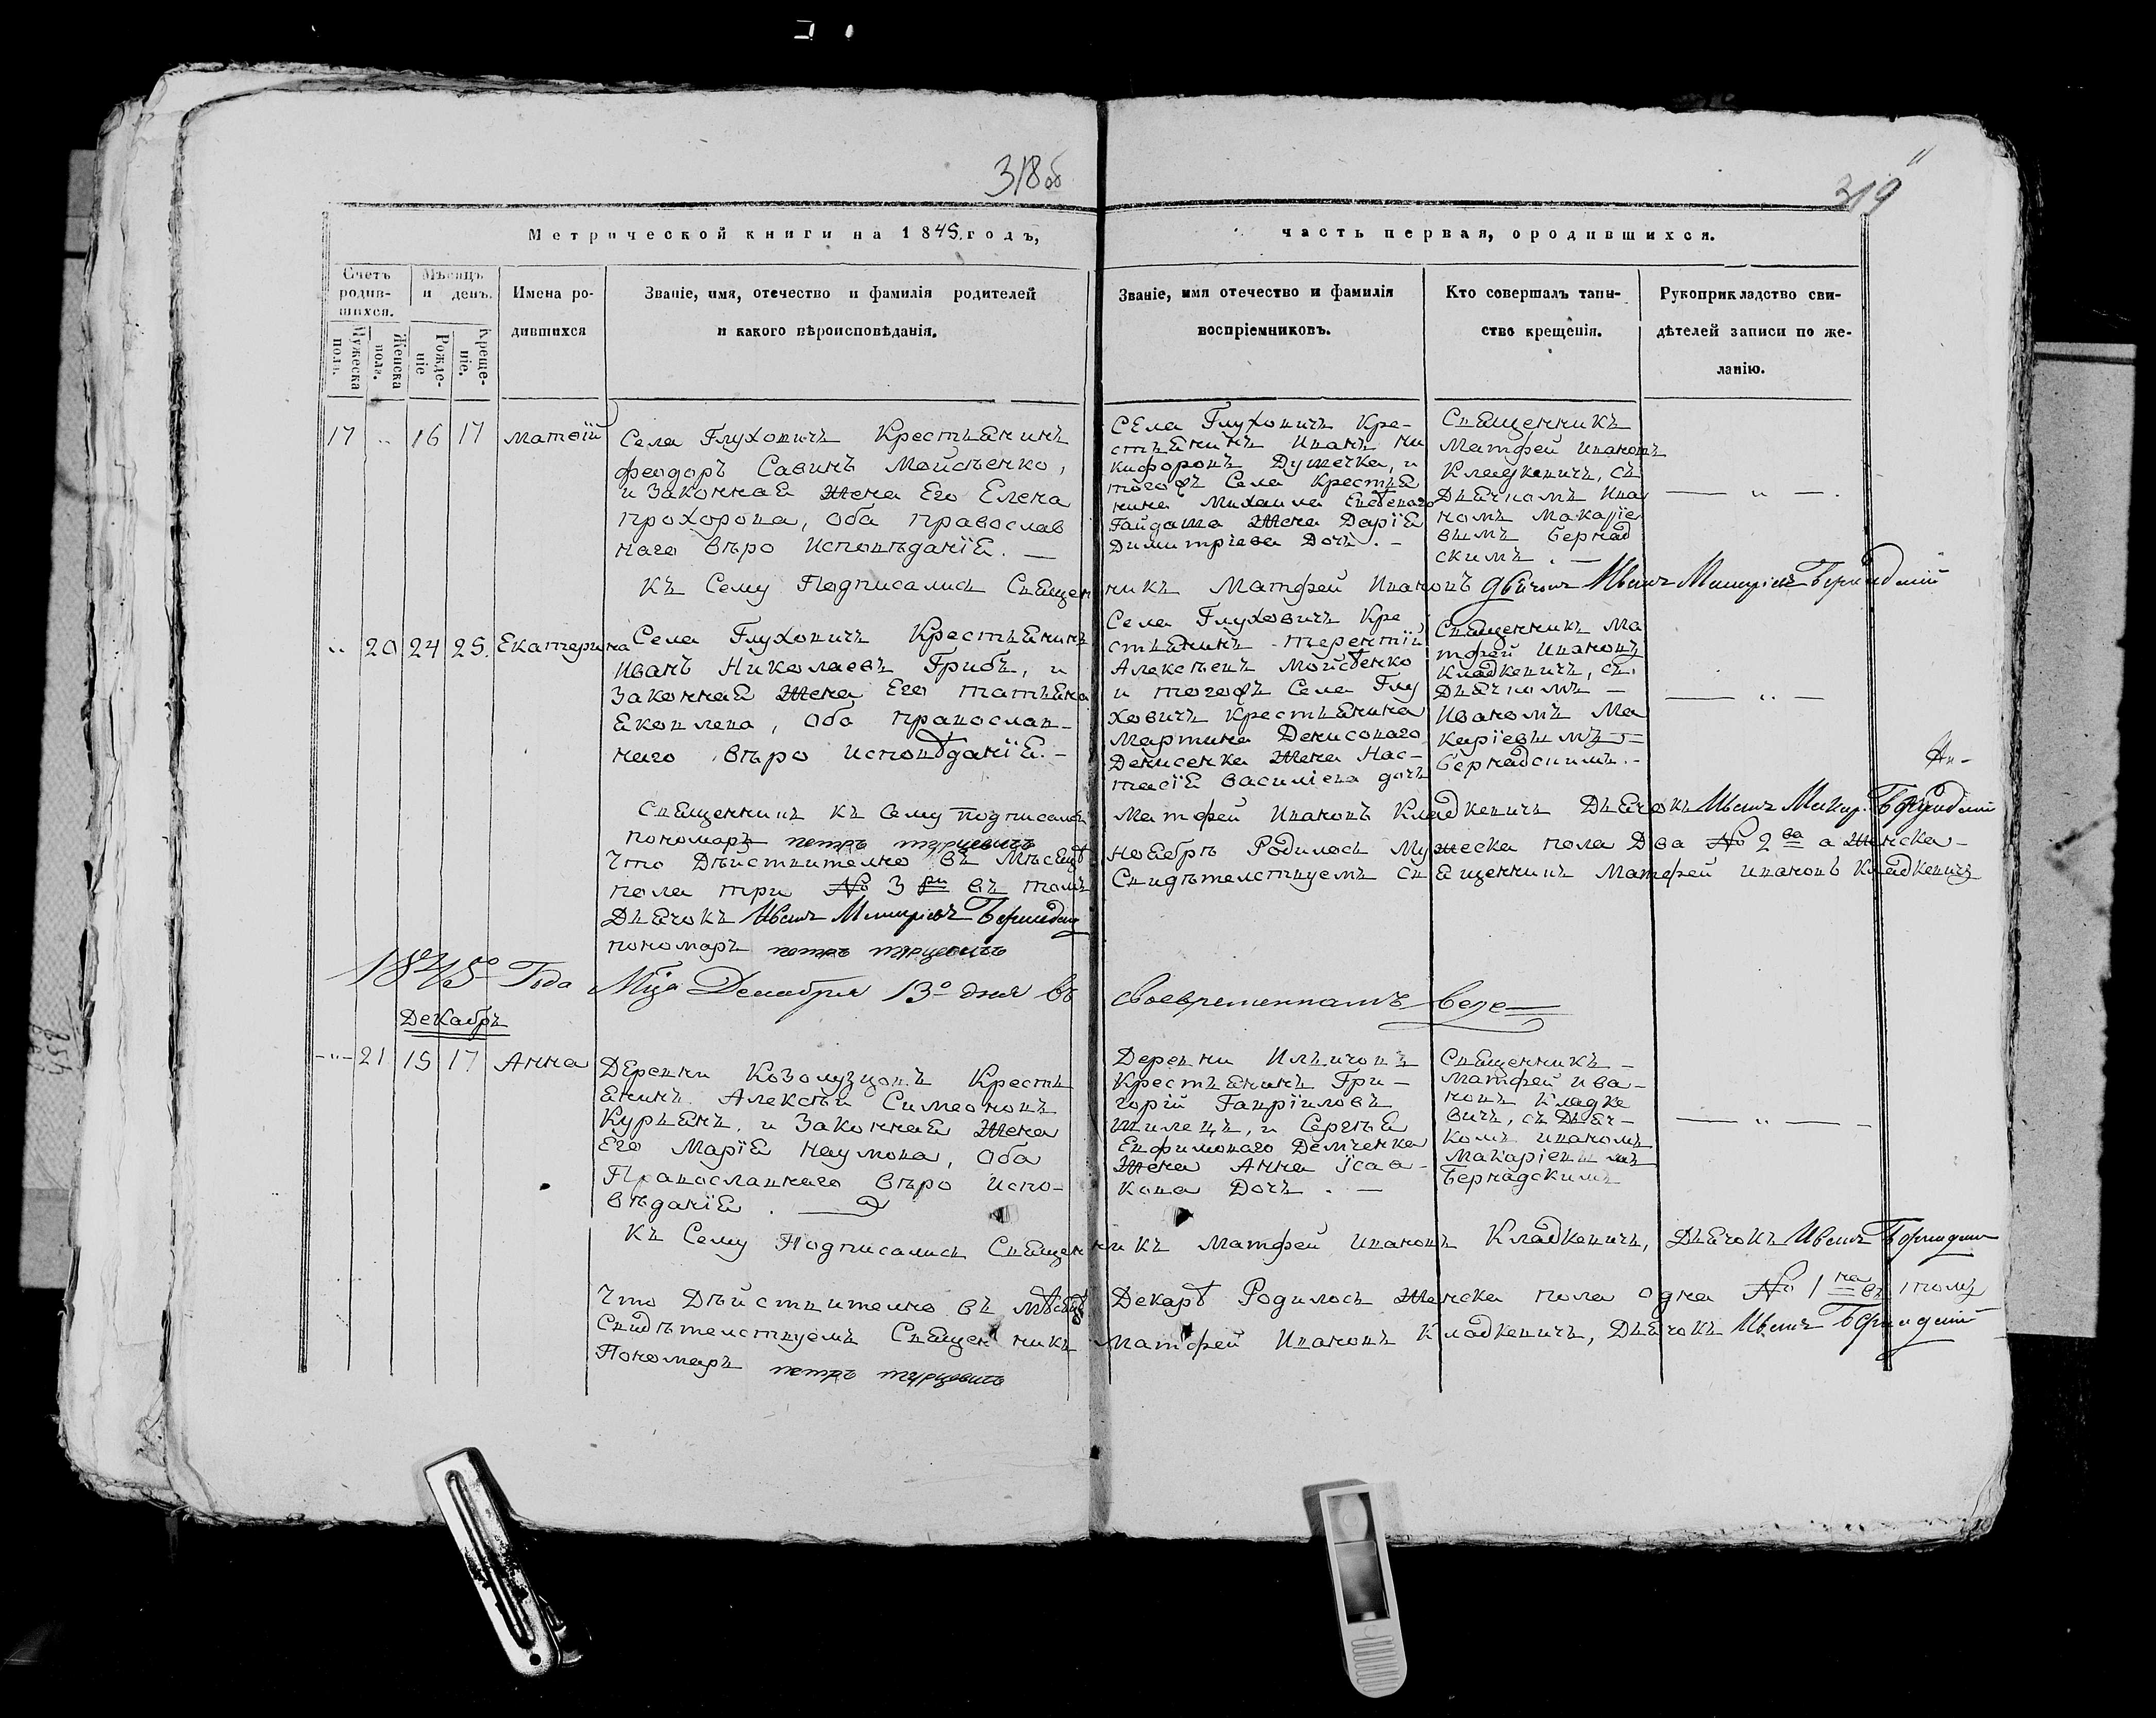 318 об
319
Метрической книги на 1845 годъ,
часть первая, о родившихся.
Счетъ родив-шихся.
Мужеска полъ.
Женска полъ.
Мѣсяцъ и день.
Рожде-ніе
Креще-ніе.
Имена ро-
дившихся
Званіе, имя, отечество и фамилія родителей
и какого вѣроисповѣданія.
Званіе, имя отечество и фамилія
воспріемниковъ.
Кто совершалъ таин-
ство крещенія.
Рукоприкладство сви-
дѣтелей записи по же-
ланію.
17 „ 16 17 Матѳій
Села Глуховичъ Крестьянинъ
феодоръ Савинъ Мойсѣенко,
и Законная Жена Его Елена
Прохорова, Оба Православ
наго Вѣро Исповѣданія. —
Села Глуховичъ Кре-
стьянинъ Иванъ Ни
кифоровъ Думечка, и
тогожъ Села Крестья
нина Михаила
Гайдаша Жена Дарія
Димитріева Дочь. –
Священникъ
Матфей Ивановъ
Кладкевичъ, съ
Дьячкомъ Ива
номъ Макаріе
вымъ Бернад
скимъ. —
— „ — .
Къ Сему Подписались Священникъ Матфей Ивановъ Дьячокъ Иванъ Макаріевъ Бернадскій
„ 20 24 25. Екатерина
Села Глуховичъ Крестьянинъ
Иванъ Николаевъ Грибъ, и
Законная Жена Его Татьяна
Яковлева, Оба Православ-
наго Вѣро Исповѣданія. –
Села Глуховичъ Кре
стьянинъ Терентій
Алексѣевъ Мойсѣенко
и тогожъ Села Глу
ховичъ Крестьянина
Мартина Денисоваго
Денисенка Жена Нас-
тасія Василіева дочь
Священникъ Ма
тфей Ивановъ
Кладкевичъ, съ
Дьячкомъ –
Иваномъ Ма
каріевымъ –
Бернадскимъ. –
— „ —
Священникъ Къ Сему подписались Матфей Ивановъ Кладкевичъ Дьячокъ Иванъ Макар. Бернадскій
пономаръ петръ турцевичъ
Что Дѣйствително въ Мѣсяцѣ Ноябрѣ Родилось Мужеска пола Два № 2 ва а Женска –
пола три № 3 ри въ томъ Свидѣтелствуемъ Священникъ Матфей Ивановъ Кладкевичъ
Дьячокъ Иванъ Макаріевъ Бернадскій
пономаръ петръ турцевичъ
1845 Года Мца Декабря 13 дня въ своевременномъ
Декабрь
„ 21 15 17 Анна
Деревни Козолузцовъ Кресть
янинъ Алексѣй Симеоновъ
Курьянъ, и Законная Жена
Его Марія Наумова, Оба
Православнаго Вѣро Испо-
вѣданія. —
Деревни Ильичовъ
Крестьянинъ Гри-
горій Гавріиловъ
Шилецъ, и Сергѣя
Ефимоваго Демченка
Жена Анна Ісаа-
кова Дочь. —
Священникъ –
Матфей Ива-
новъ Кладке
вичъ, съ Дьяч-
комъ Иваномъ
Макаріевымъ
Бернадскимъ
— „ — –
Къ Сему Подписались Священникъ Матфей Ивановъ Кладкевичъ, Дьячокъ Иванъ Бернадскій
Что Дѣйствително въ Мѣсяцѣ Декарѣ Родилось Женска пола одна № 1 на въ томъ
Свидѣтелствуемъ Священникъ Матфей Ивановъ Кладкевичъ, Дьячокъ Иванъ Бернадскій
Пономаръ петръ турцевичъ